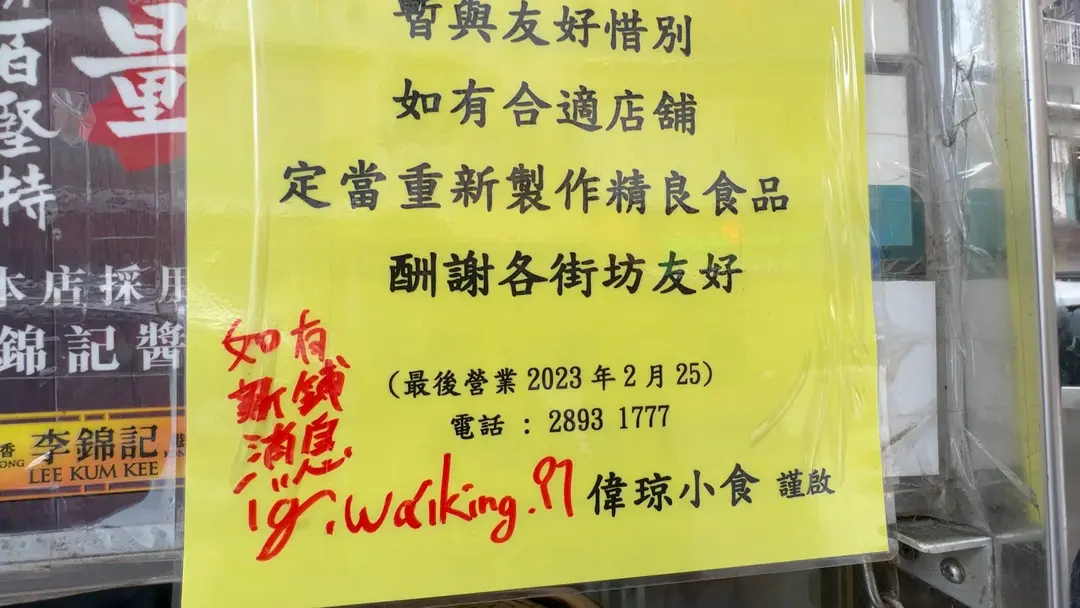 暫與友好惜別
如有合適店舖
定當重新製作精良食品
酬謝各街坊友好
(最後營業 2023 年 2 月 25)
電話 : 2893 1777
偉琼小食 謹啟
如有
新鋪
消息
ig.walking.91
百堅持
量
本店採用
錦記醬
香
李錦記
LEE KUM KEE